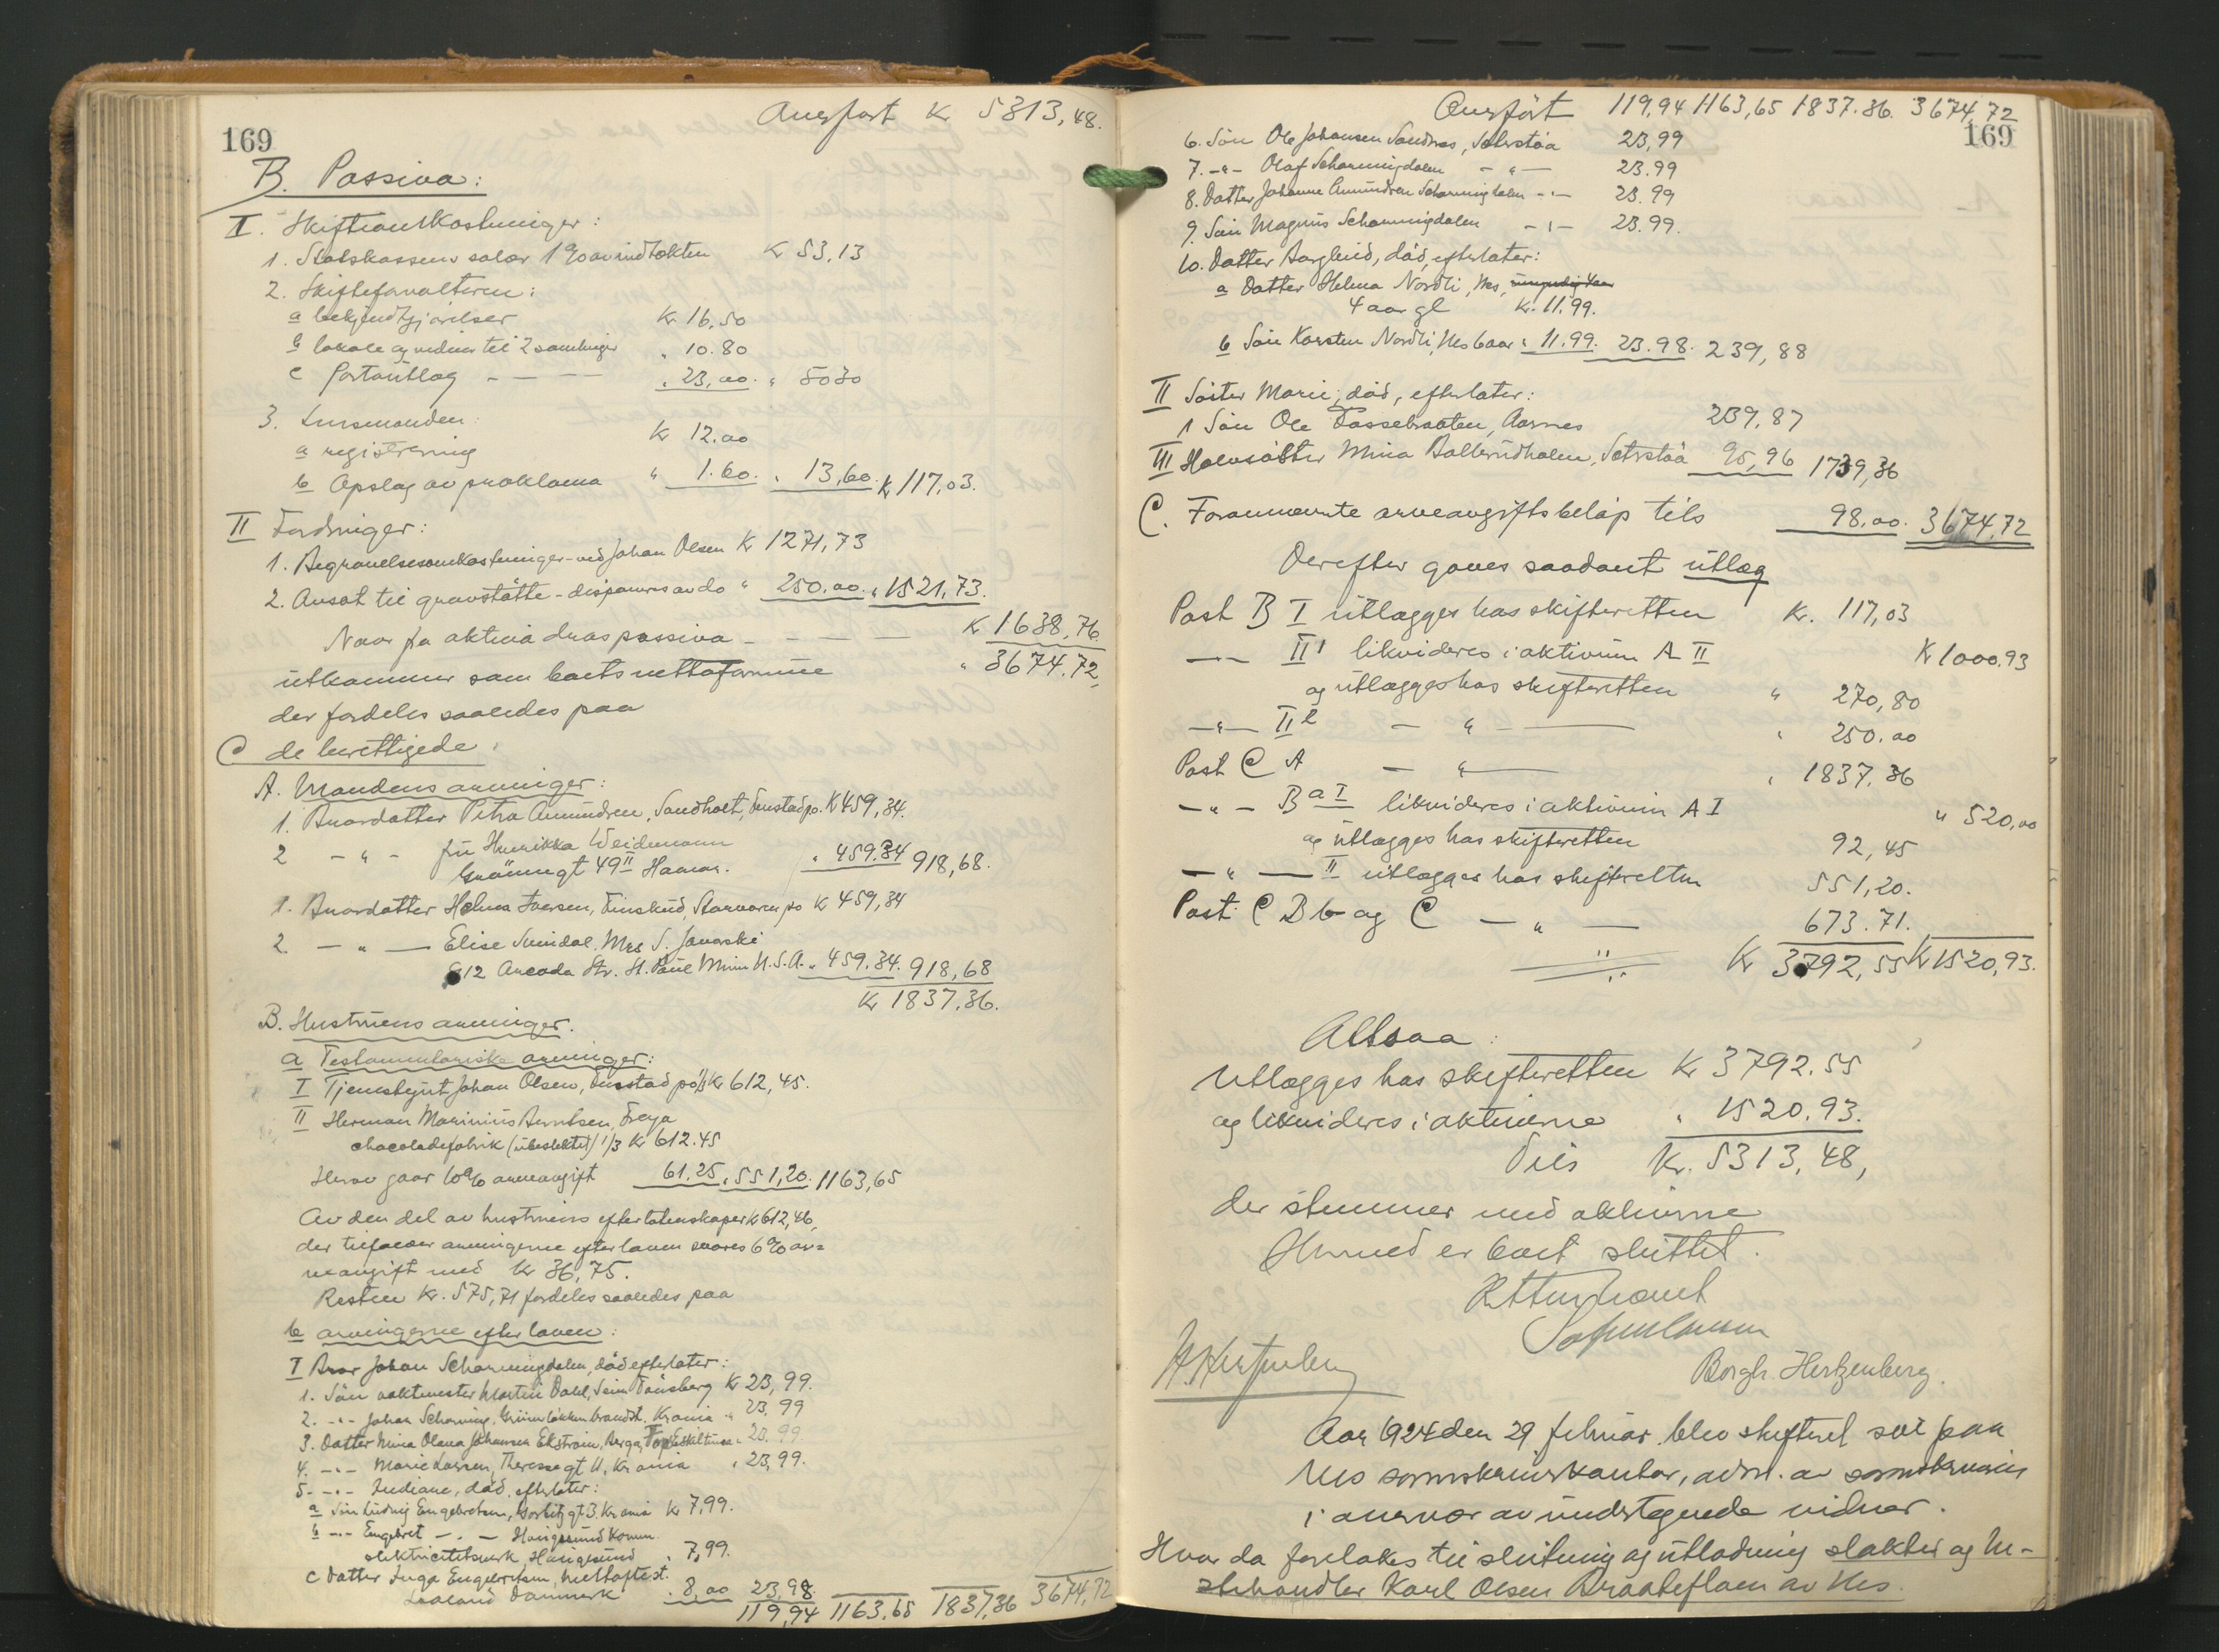 169
Overført Kr 5313,48.
B. Passiva:
I. Skifteomkostninger:
1. Statskassens salær 1% av indtækten Kr 53,13
2. Skifteforvalteren:
a bekjendtgjørelser Kr 16,50
b lokale og vidner til 2 samlinger " 10.80
c Portoutlæg " 23,00. " 5030
3. Lensmanden:
a registrering Kr 12.00
b Opslag av proklama " 1.60. " 13,60. Kr 117,03.
II Fordringer:
1. Begravelsesomkostninger - ved Johan Olsen Kr 1271,73
2. Ansat til gravstøtte - disponeres av do " 250.00. " 1521,73.
Naar fra aktiva dras passiva Kr 1638,76.
utkommer som boets nettoformue " 3674.72,
der fordeles saaledes paa
C de berettigede.
A. Mandens arvinger:
1. Brordatter Petra Amundsen, Sandholt, Fenstad po. Kr 459,34.
2 - " - fru Henrikka Weidemann
Grønnegt 49 II Hamar. " 459.34 918,68.
1. Brordatter Helma Iversen, Finslud, Skarnæs po Kr 459,34
2. - " - Elise Sundal. Mrs S. Janoski
812 Arcade Str. St. Paul Minn U.S.A. " 459.34. 918,68
Kr 1837.36.
B. Hustruens arvinger.
a Testamentariske arvinger:
I Tjenestegut Johan Olsen, Fenstad po 1/3 Kr 612,45.
II Herman Marinius Berntsen, Freya
chocoladefabrik (ubeslektet) 1/3 Kr 612.45
Herav gaar 10% arveavgift 61.25. " 551,20. 1163,65
Av den del av hustruens efterlatenskaper Kr 612,46,
der tilfalder arvingerne efter loven svares 6% ar-
veavgift med Kr 36,75.
Resten Kr. 575,71 fordeles saaledes paa
b arvingerne efter loven:
I Bror Johan Scharningdalen, død efterlater:
1. Søn vaktmester Martin Dahl, Seim Tønsberg Kr 23,99.
2. - " - Johan Scharning, Grünerløkken brandst. Krania " 23.99
3. Datter Mina Olava Johansen Ekstrøm, Berga, Eskiltuna " 23.99
4. - " - Marie Larsen, Theresegt 11, Krania " 23,99.
5. - " - Indiane, død, efterlater:
a Søn Ludvig Engebretsen, Gørbitzgt 3. Krania Kr 7,99.
b - " - Engebret - " - Haugesund Komm.
elektricitetsverk, Haugesund " 7,99.
c Datter Inga Engebretsen,
Laaland Danmark " 8,00 23,98.
119,94 1163,65 1837,36 3674,72
169
Overført 119,94 1163,65 1837.36. 3674,72
6. Søn Ole Johansen Sandnes, Sætrstøa 23,99
7. - " - Olaf Scharningdalen - " - 23.99
8. Datter Johanne Amundsen Scharningdalen - " - 23.99
9. Søn Magnus Scharningdalen - " - 23.99.
10. Datter Borghild, død, efterlater:
a Datter Helma Nordli, Nes,
4 aar gl Kr. 11.99.
b Søn Karsten Nordli, Nes 6 aar " 11.99. 23.98. 239,88
II Søster Marie, død, efterlater:
1 Søn Ole Fossebraaten, Aarnes 239,87
III Halvsøster Mina Ballerudholen, Sætrstøa 95,96 1739,36
C. Forannævnte arveavgiftsbeløp tils 98.00. 3674,72
Derefter gøres saadant utlæg
Post B I utlægges hos skifteretten Kr. 117,03
- " - II 1 likvideres i aktivum A II Kr 1000.93
og utlægges hos skifteretten " 270,80
- " - II 2 - " - " 250.00
Post C A - " - " 1837,36
- " - B a I likvideres i aktivum A I " 520,00
og utlægges hos skifteretten 92,45
- " - II utlægges hos skifteretten 551,20.
Post C B b og C - " - 673.71.
Kr 3792,55 Kr 1520,93.
Altsaa:
Utlægges hos skifteretten Kr 3792.55
og likvideres i aktiverne " 1520.93.
Tils Kr. 5313,48,
der stemmer med aktiverne
Hermed er boet sluttet.
Retten hævet
H. Hertzenberg
Borgh. Hertzenberg.
Aar 1924 den 29 februar blev skifteret sat paa
Nes sorenskriverkontor, adm. av sorenskriveren
i nærvær av undertegnede vidner.
Hvor da foretokes til slutning og utlodning slakter og u-
sthandler Karl Olsen Braateflaen av Nes.